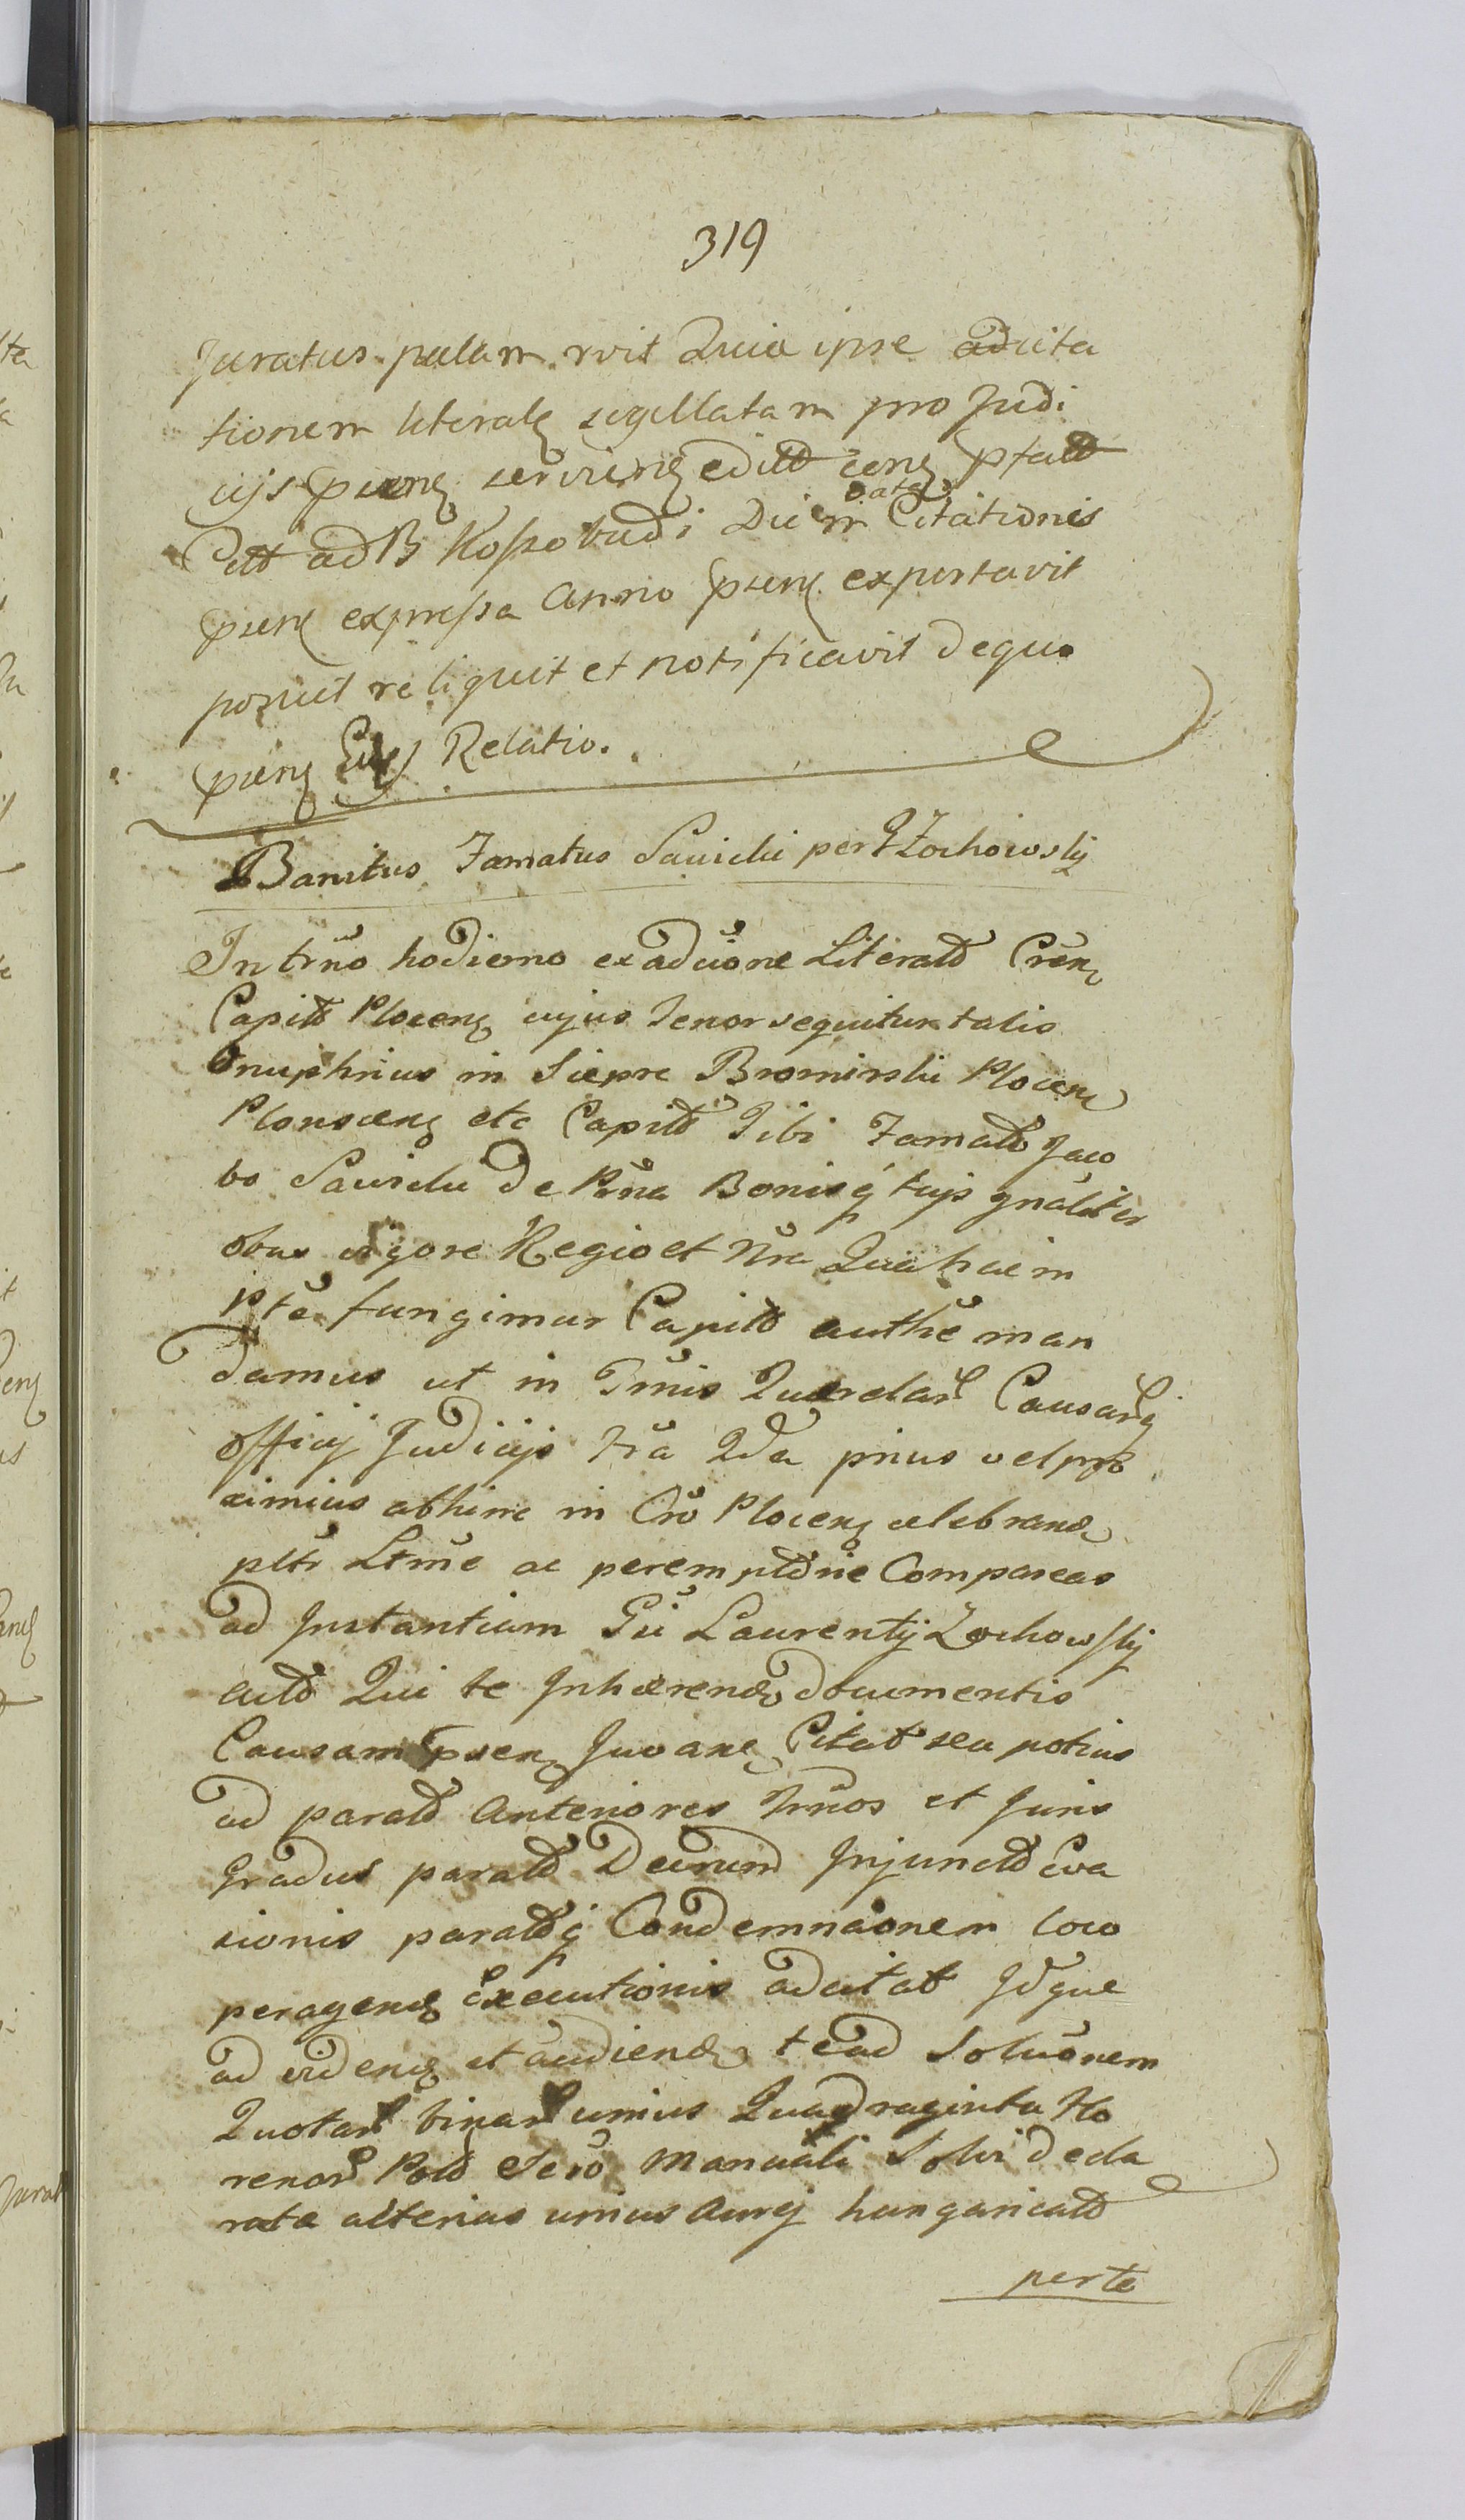 319
Juratus palam rvit Quia ipse adcita
tionem literalę sigillatam pro Judi
cijs servienę
ad B Kossobudi Diem Citationis
date
expressa Anno expertavit
posuit reliquit et notificavit dequo
Relatio.
Banitus Famatus Sawicki per G Żochowsky
In trno hodierno ex adcione Literali Cren
Capit Plocen cujus Tenor sequitur talis
Onuphrius in Siepre Bromirski Plocen
Plonscen etc Capit Tibi Famat Jaco
bo Sawicki de Psna Bonisq tuis gnaliter
obus vigore Regio et Nra Qua hac in
pte fungimur Capit authe man
damus ut in Trnis Querelar Causarq
officij Judicijs tra Qda prius vel pro
ximius abhinc in Cro Plocen celebrand
pltr Ltme ac peremptorie Compareas
ad Instantiam Gsi Laurentij Żochowsky
Act Qui te Inhærend documentis
Causam psen Juvan Citat seu potius
ad parat Anteriores trnos et Juris
gradus parat Decretum Injunct Eva
sionis paratq Condemnaonem loco
peragend Executionis adcitat Idque
ad videnę et audiend te ad Soluonem
Quotar binar unius Quadraginta flo
renor Pol Sero Manuali Solvi decla
rata alterius unius Aurej hungarical
per te